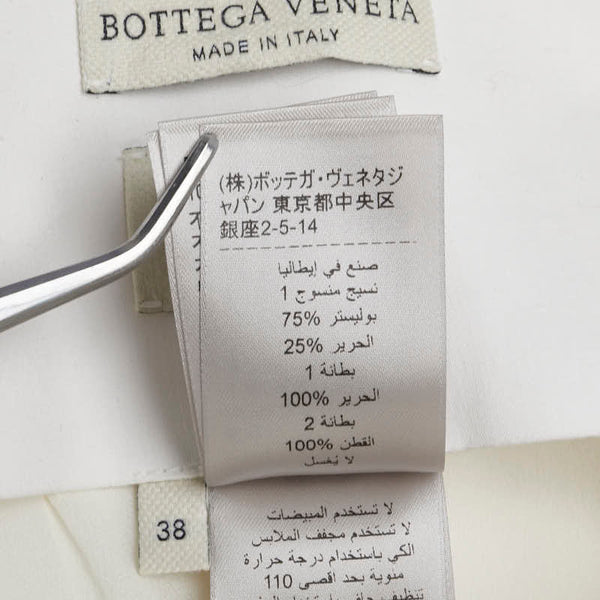 BOTTEGA VENETA
MADE IN ITALY
(株)ボッテガ・ヴェネタジ
ャパン 東京都中央区
銀座2-5-14
صنع في إيطاليا
نسيج منسوج 1
بوليستر %75
الحرير %25
بطانة 1
الحرير %100
بطانة 2
القطن %100
لا يُغسل
لا تستخدم المبيضات
لا تستخدم مجفف الملابس
الكي باستخدام درجة حرارة
مئوية بحد اقصى 110
38